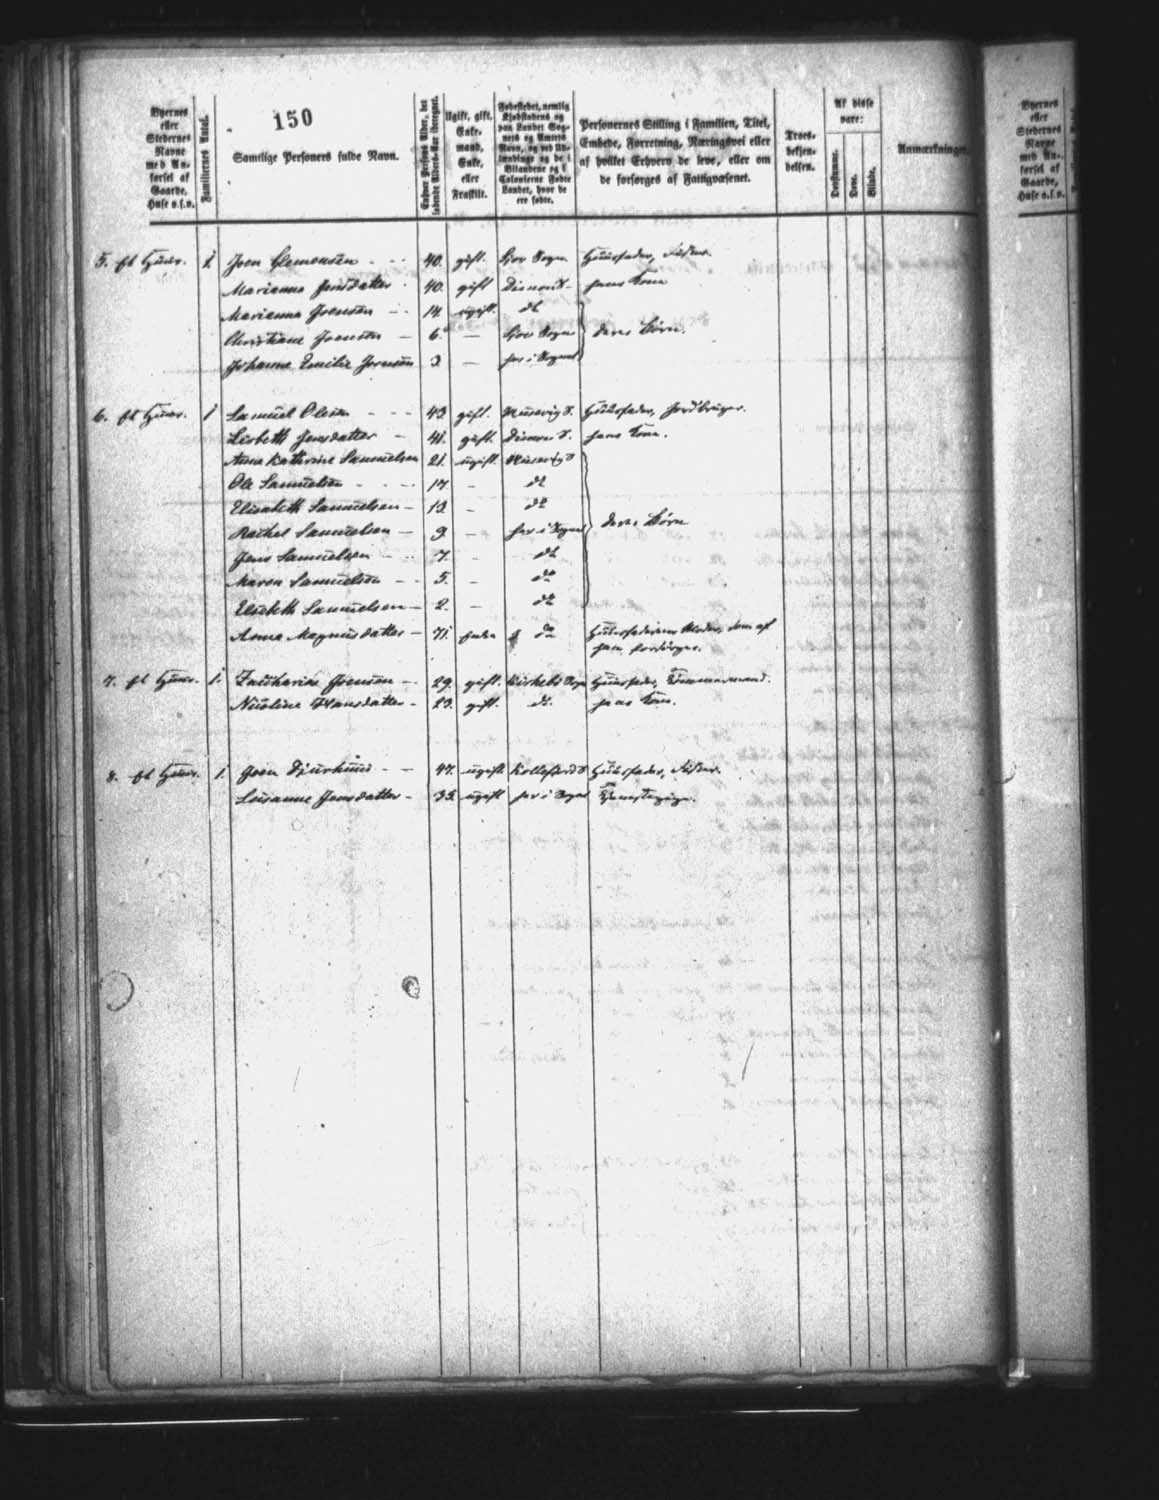 150
Byernes eller Stedernes Navne med Anførsel af Gaarde, Huse o.s.v.
Familiernes Antal.
Samtlige Personers fulde Navn.
Enhver Persons Alder, det løbende Alders-Aar iberegnet.
Ugift, gift, Enkemand, Enke, eller Fraskilt.
Fødestedet, nemlig Kjøbstadens og paa Landet Sognets og Amtets Navn, og ved Udlændinge og de i Bilandene og i Colonierne Fødte Landet, hvor de ere fødte.
Personernes Stilling i Familien, Titel, Embede, Forretning, Næringsvei eller af hvilket Erhverv de leve, eller om de forsørges af Fattigvæsenet.
Troesbekjendelsen.
Af disse vare:
Døvstumme.
Døve.
Blinde.
Anmærkninger.
5. Huus. 1. Joen Clemensen 40. gift. Sogn Huusfader, Fisker.
Marianna Jensdatter 40. gift hans Kone
Marianna Joensen 14. ugift. dt
Christiane Joensen 6. — Sogn deres Børn.
Johanne Emilie Joensen 3 — her i Sognet
6. Huus. 1 Samuel Olesen 43. gift. S. Huusfader, Jordbruger.
Lisbeth Jensdatter 41. gift. S. hans Kone.
Anna Kathrine Samuelsen 21. ugift
Ole Samuelsen 17 - dt
Elisabeth Samuelsen 13. - dt
Rachel Samuelsen 9. - her i Sognet deres Børn
Jens Samuelsen 7. - dt
Maren Samuelsen 5. - dt
Elsebeth Samuelsen 2. - dt
Anna Magnusdatter 71. dt Huusfaderens Moder, som af
ham forsørges.
7. Huus. 1. Zacharias Joensen 29. gift. Sogn Huusfader, Tømmermand.
Hansdatter 23. gift. dt. hans Kone.
8. Huus. 1. Joen Djurhuus 47. ugift Kollefjord S Huusfader, Fisker.
Susanne Jensdatter 35. ugift her i Sognet Tjenestepige.
Byernes eller Stedernes Navne med Anførsel af Gaarde, Huse o.s.v.